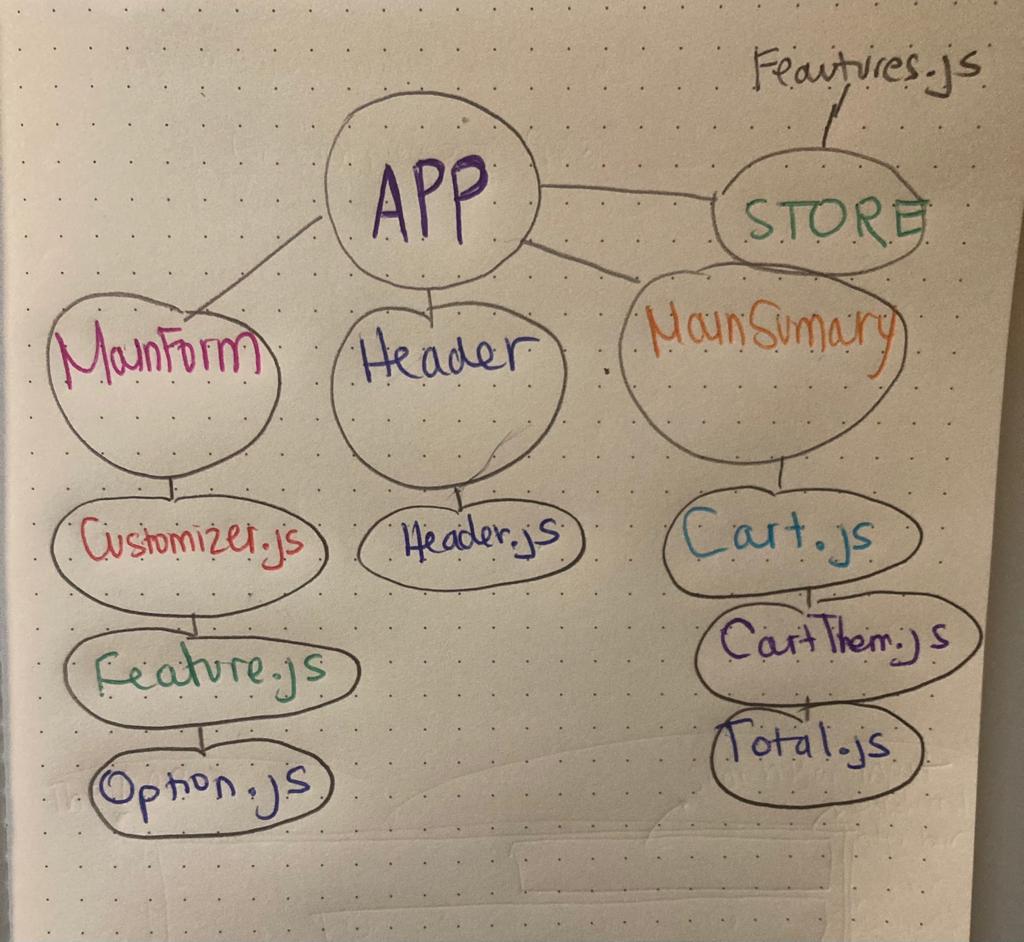 Feautures.js
APP
STORE
MainForm
Header
MainSumary
Customizer.js
Header.js
Cart.js
Feature.js
CartThem.js
Option.js
Total.js